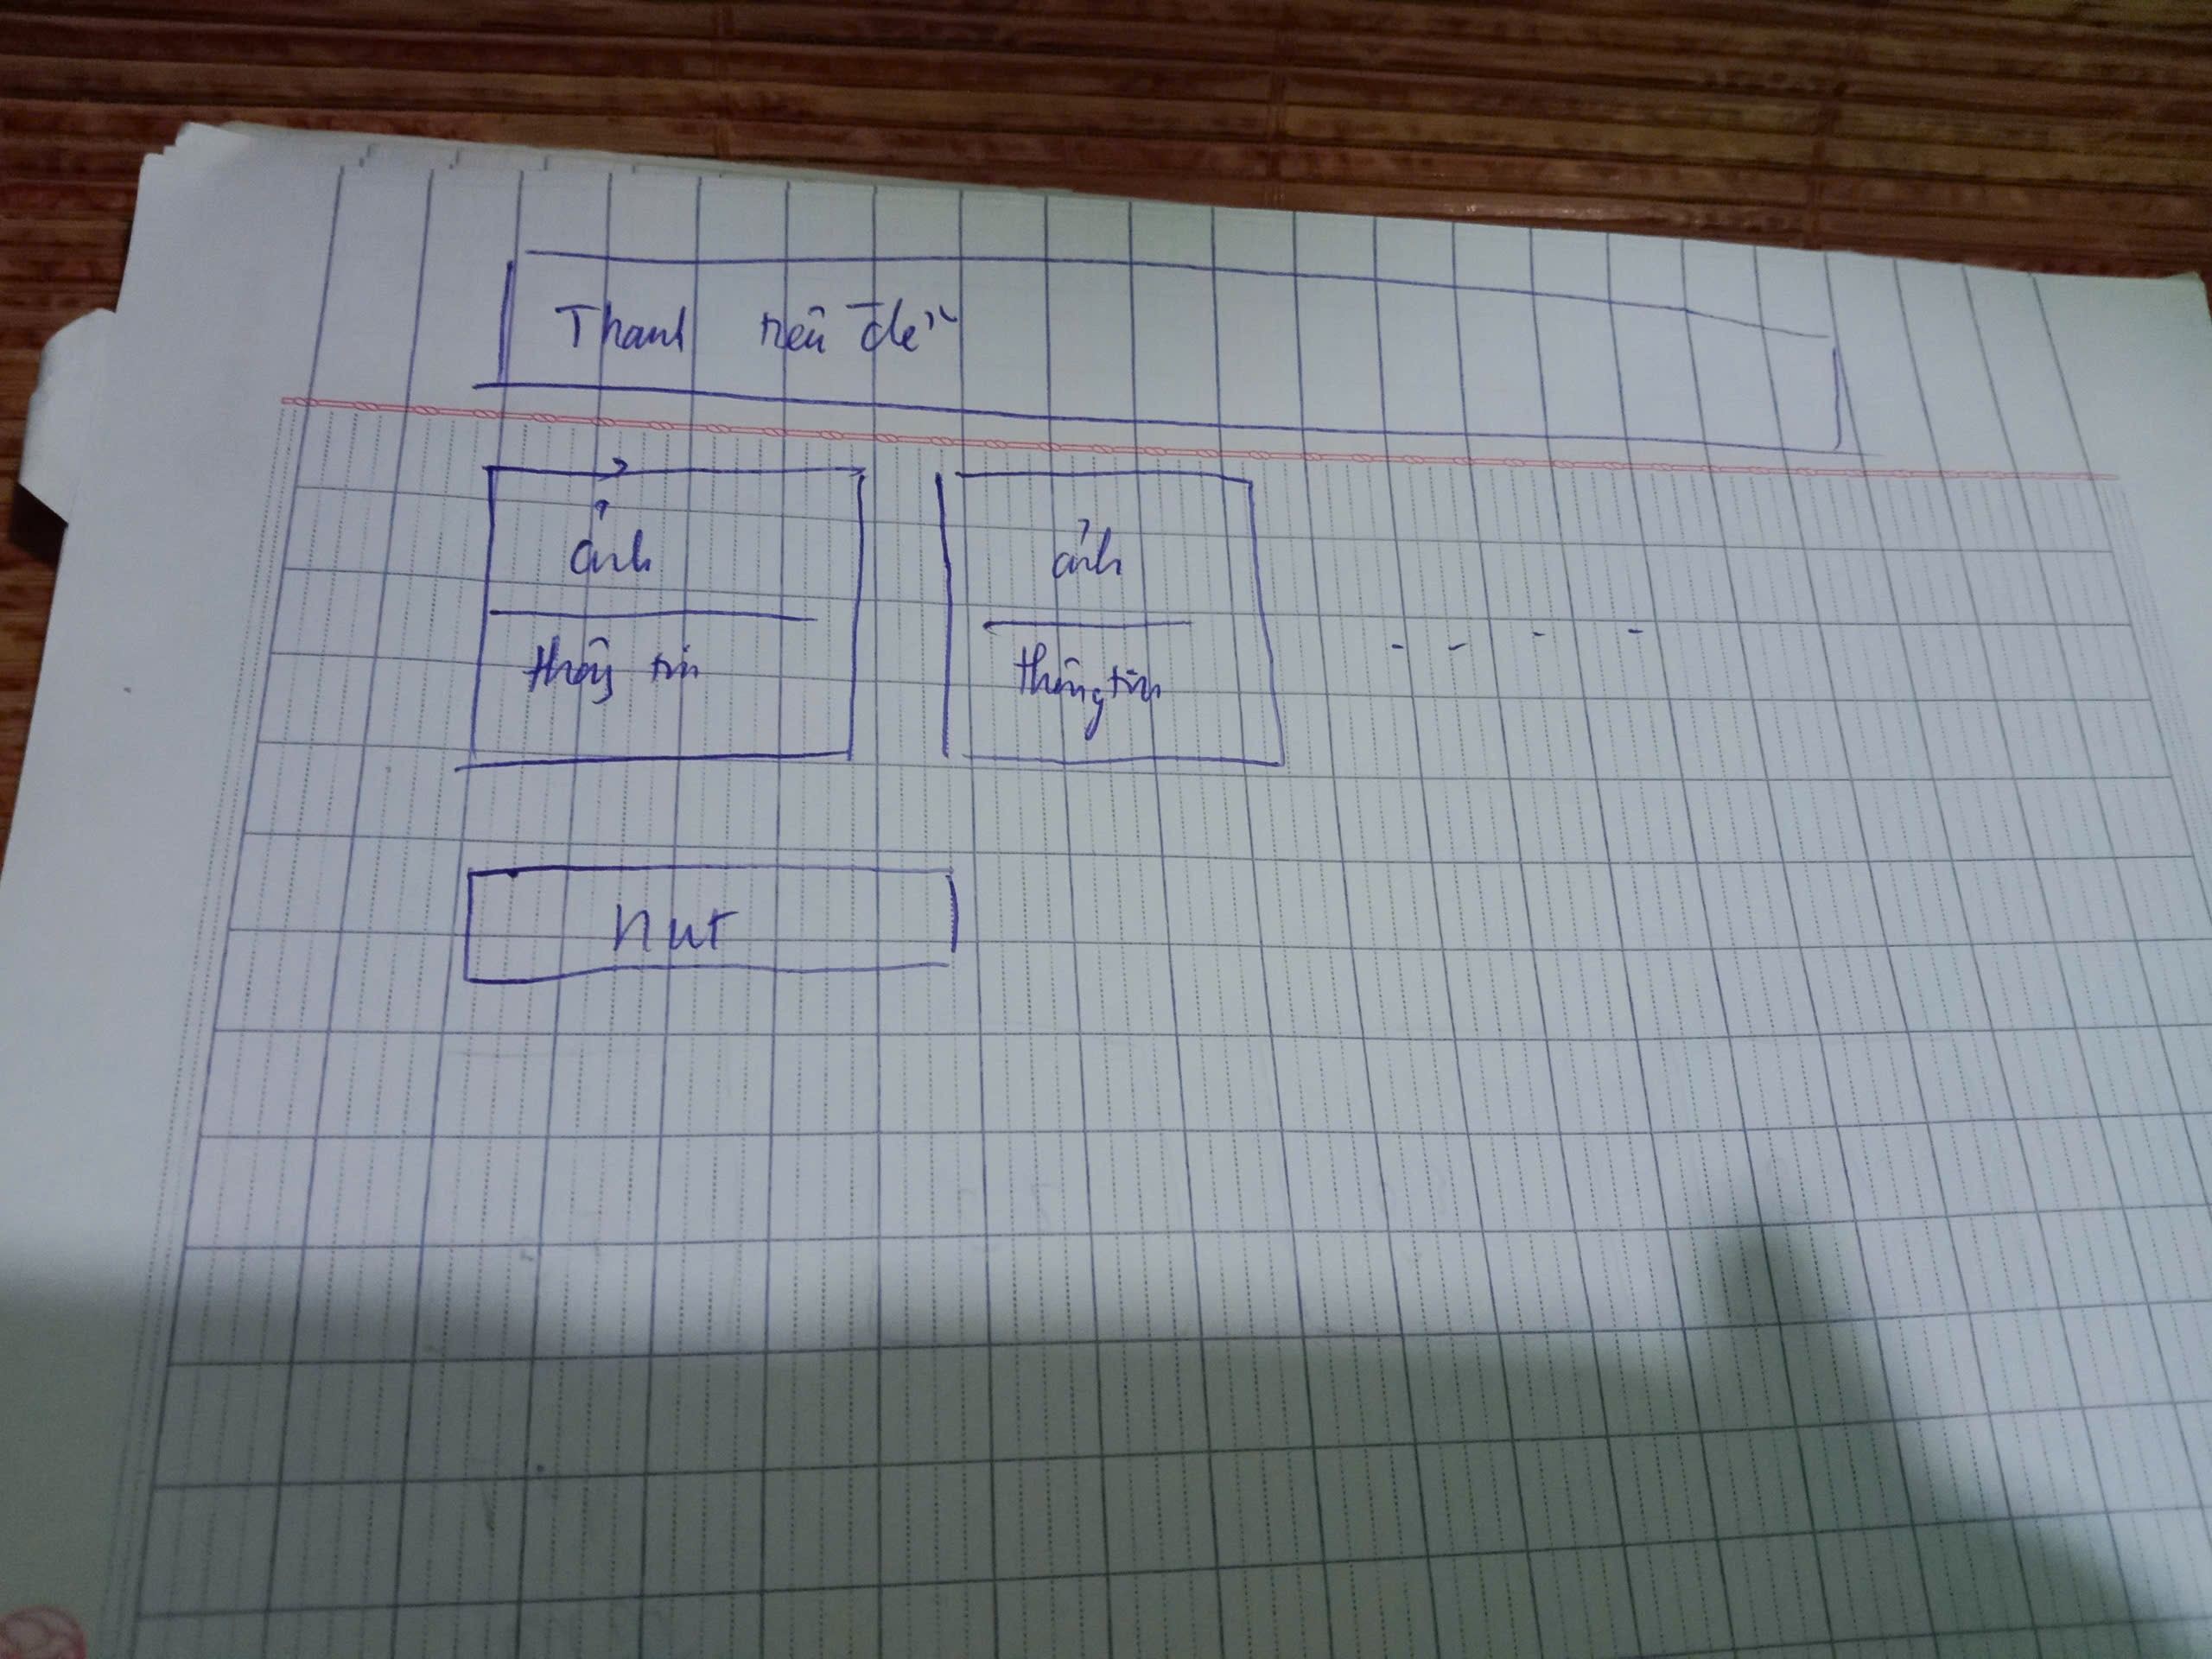 Thanh tiêu đề
ảnh ảnh
thông tin thông tin
nut